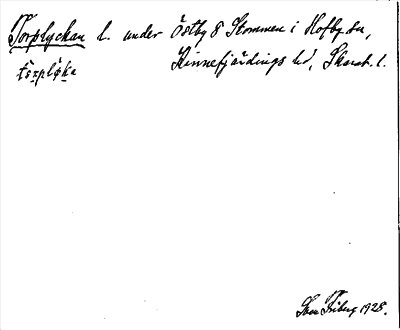 Torplyckan l. under Östby 8 Stommen i Hofby sn,
Kinnefjärdings hd, Skarab. l.
Sven Friberg 1928.